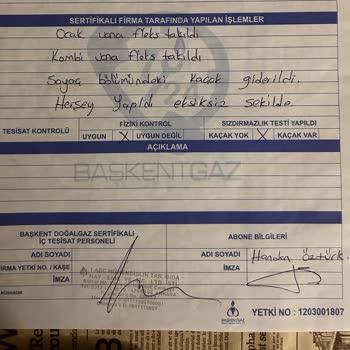 SERTİFİKALI FİRMA TARAFINDAN YAPILAN İŞLEMLER
Ocak vana fleks takıldı
Kombi vana fleks takıldı
Sayaç bölümündeki kaçak giderildi.
Hersey Yapıldı eksiksiz sekilde
TESİSAT KONTROLÜ
FİZİKİ KONTROL
SIZDIRMAZLIK TESTİ YAPILDI
UYGUN X UYGUN DEĞİL KAÇAK YOK X KAÇAK VAR
AÇIKLAMA
BAŞKENTGAZ
BAŞKENT DOĞALGAZ SERTİFİKALI
İÇ TESİSAT PERSONELİ
ABONE BİLGİLERİ
ADI SOYADI
ADI SOYADI Handan Öztürk
FİRMA YETKİ NO. / KAŞE
İMZA
İMZA
BAŞKENTGAZ
YETKİ NO : 1203001807